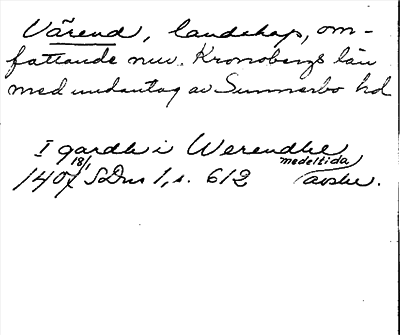 Värend, landskap, om-
fattande nuv. Kronobergs län
med undantag av Sunnerbo hd
I gardh i Werendhe
18/1 medeltida
1407 SDns 1, s. 612 avskr.